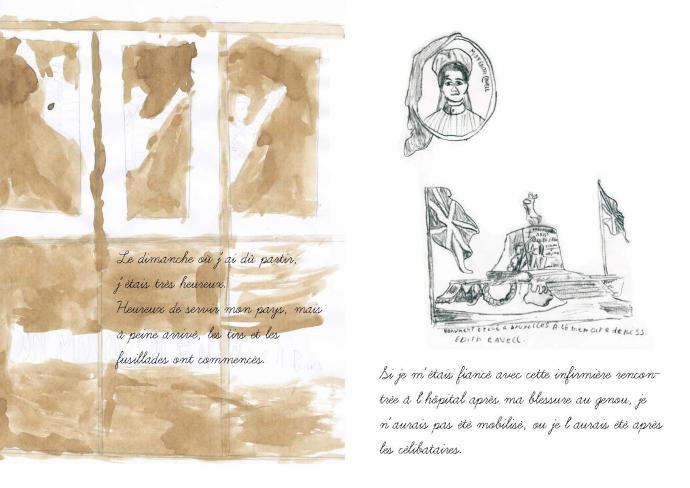 Le dimanche où j'ai dû partir,
j'étais très heureux.
Heureux de servir mon pays, mais
à peine arrivé, les tirs et les
fusillades ont commencés.
MISS EDITH CAVELL
MONUMENT ÉRIGÉ A BRUXELLES A LA MEMOIRE de MISS
EDITH CAVELL.
Si je m'étais fiancé avec cette infirmière rencon-
trée à l'hôpital après ma blessure au genou, je
n'aurais pas été mobilisé, ou je l'aurais été après
les célibataires.